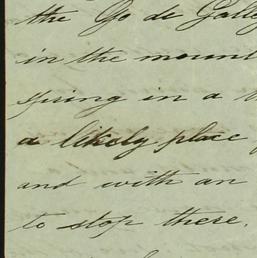 the Go de Gall
in the mount
spring in a
a likely place
and with an
to stop there.